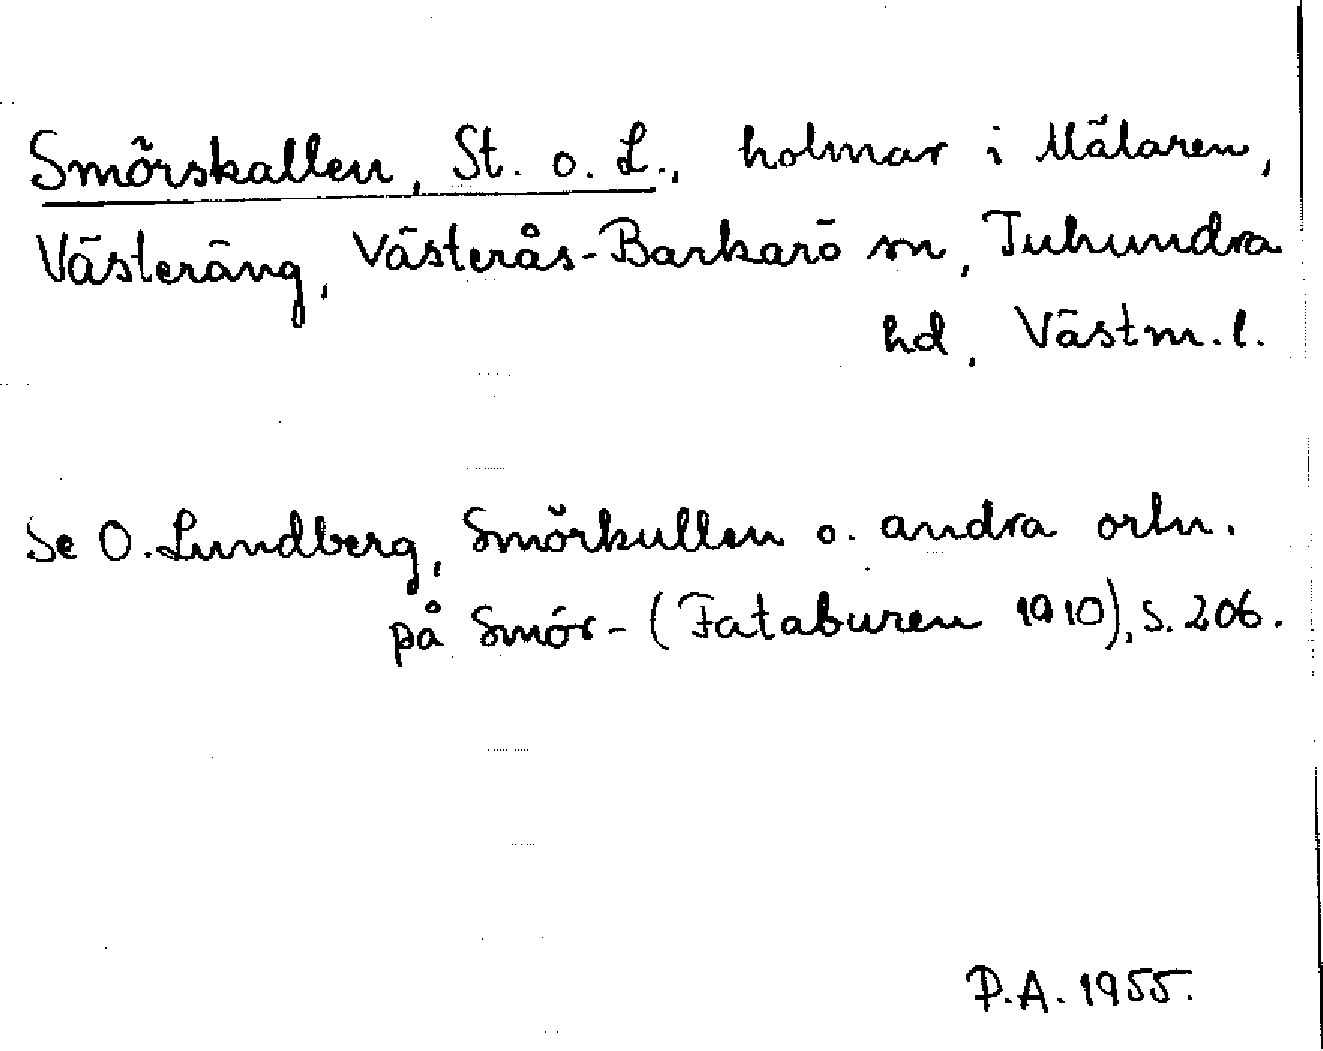 Smörskallen, St. o. L., holmar i Mälaren,
Västeräng, Västerås-Barkarö sn, Tuhundra
hd, Västm. l.
Se O. Lundberg, Smörkullen o. andra ortn.
på Smör- (Fataburen 1910), s. 206.
P.A. 1955.